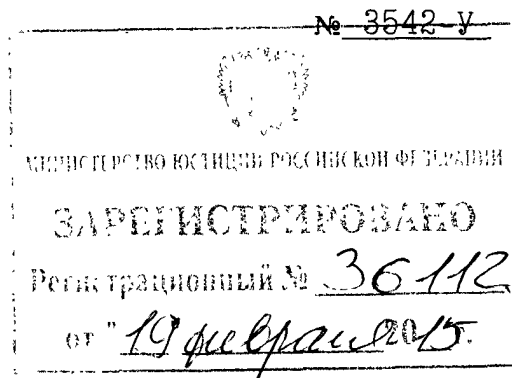 № 3542-У
МИНИСТЕРСТВО ЮСТИЦИИ РОССИЙСКОЙ ФЕДЕРАЦИИ
ЗАРЕГИСТРИРОВАНО
Регистрационный № 36112
от "19 февраля 2015г.